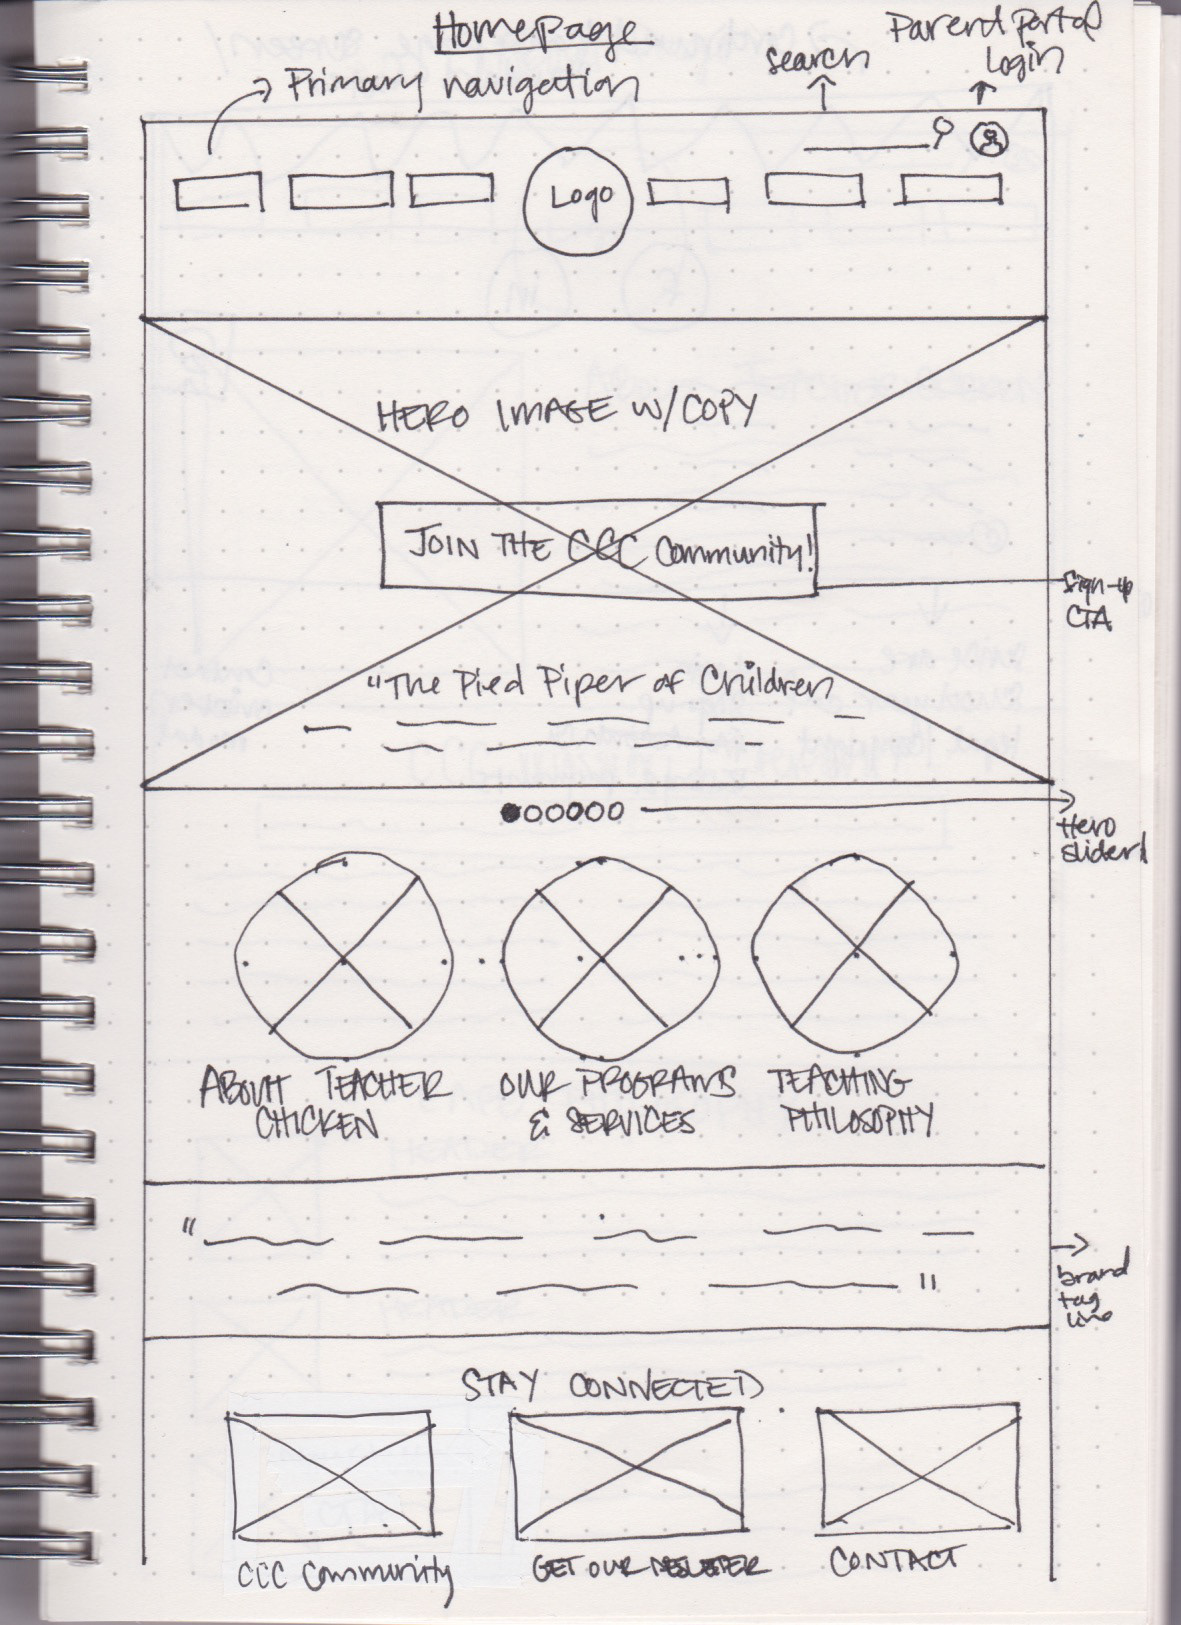 Homepage
Primary navigation
search
Parent Portal
Login
Logo
HERO IMAGE W/COPY
JOIN THE CCC Community!
Sign-up
CTA
"The Pied Piper of Children
Hero
slider
ABOUT TEACHER
CHICKEN
OUR PROGRAMS
& SERVICES
TEACHING
PHILOSOPHY
"
"
brand
tag
line
STAY CONNECTED
CCC Community
GET OUR
CONTACT